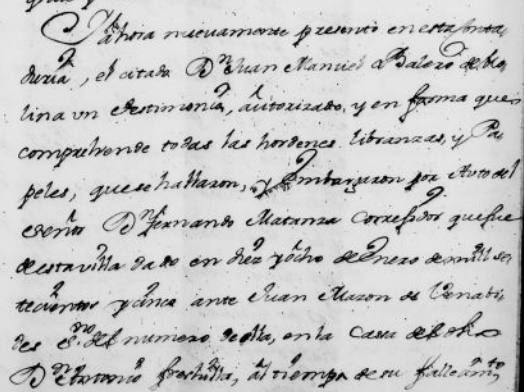 Y ahora nuevamente presento en esta Conta
duria, el citado Dn Juan Manuel Balero de
lina un testimonio, autorizado, y en forma que
comprehende todas las hordenes libranzas, y Pa
peles, que se hallaron, y Embargaron por Auto del
señor Dn Fernando Matanza Corregidor que fue
de esta villa dado en diez y ocho de Enero de mill se
tecientos y cinco ante Juan Mazon de Benabi
des Sno del numero de ella, en la Casa del dho
Dn Antonio al tiempo de su fallecimto